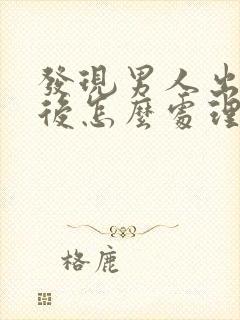 發現男人出
後怎麼處理
格鹿